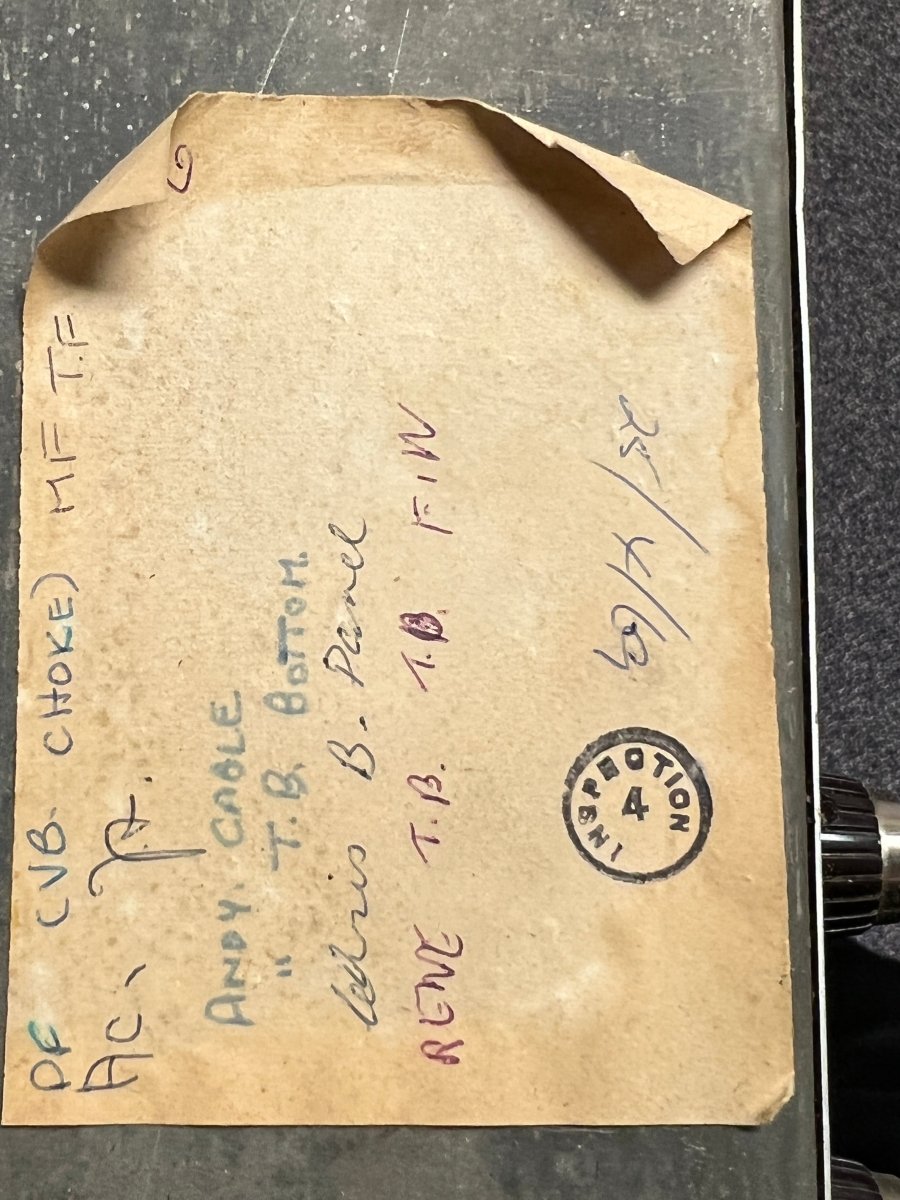 DF (VB. CHOKE) MF T.F
AC,
ANDY. CABLE
" T.B. BOTTOM.
Chris B. Panel
RENE T.B. T.B. FIN
INSPECTION
4